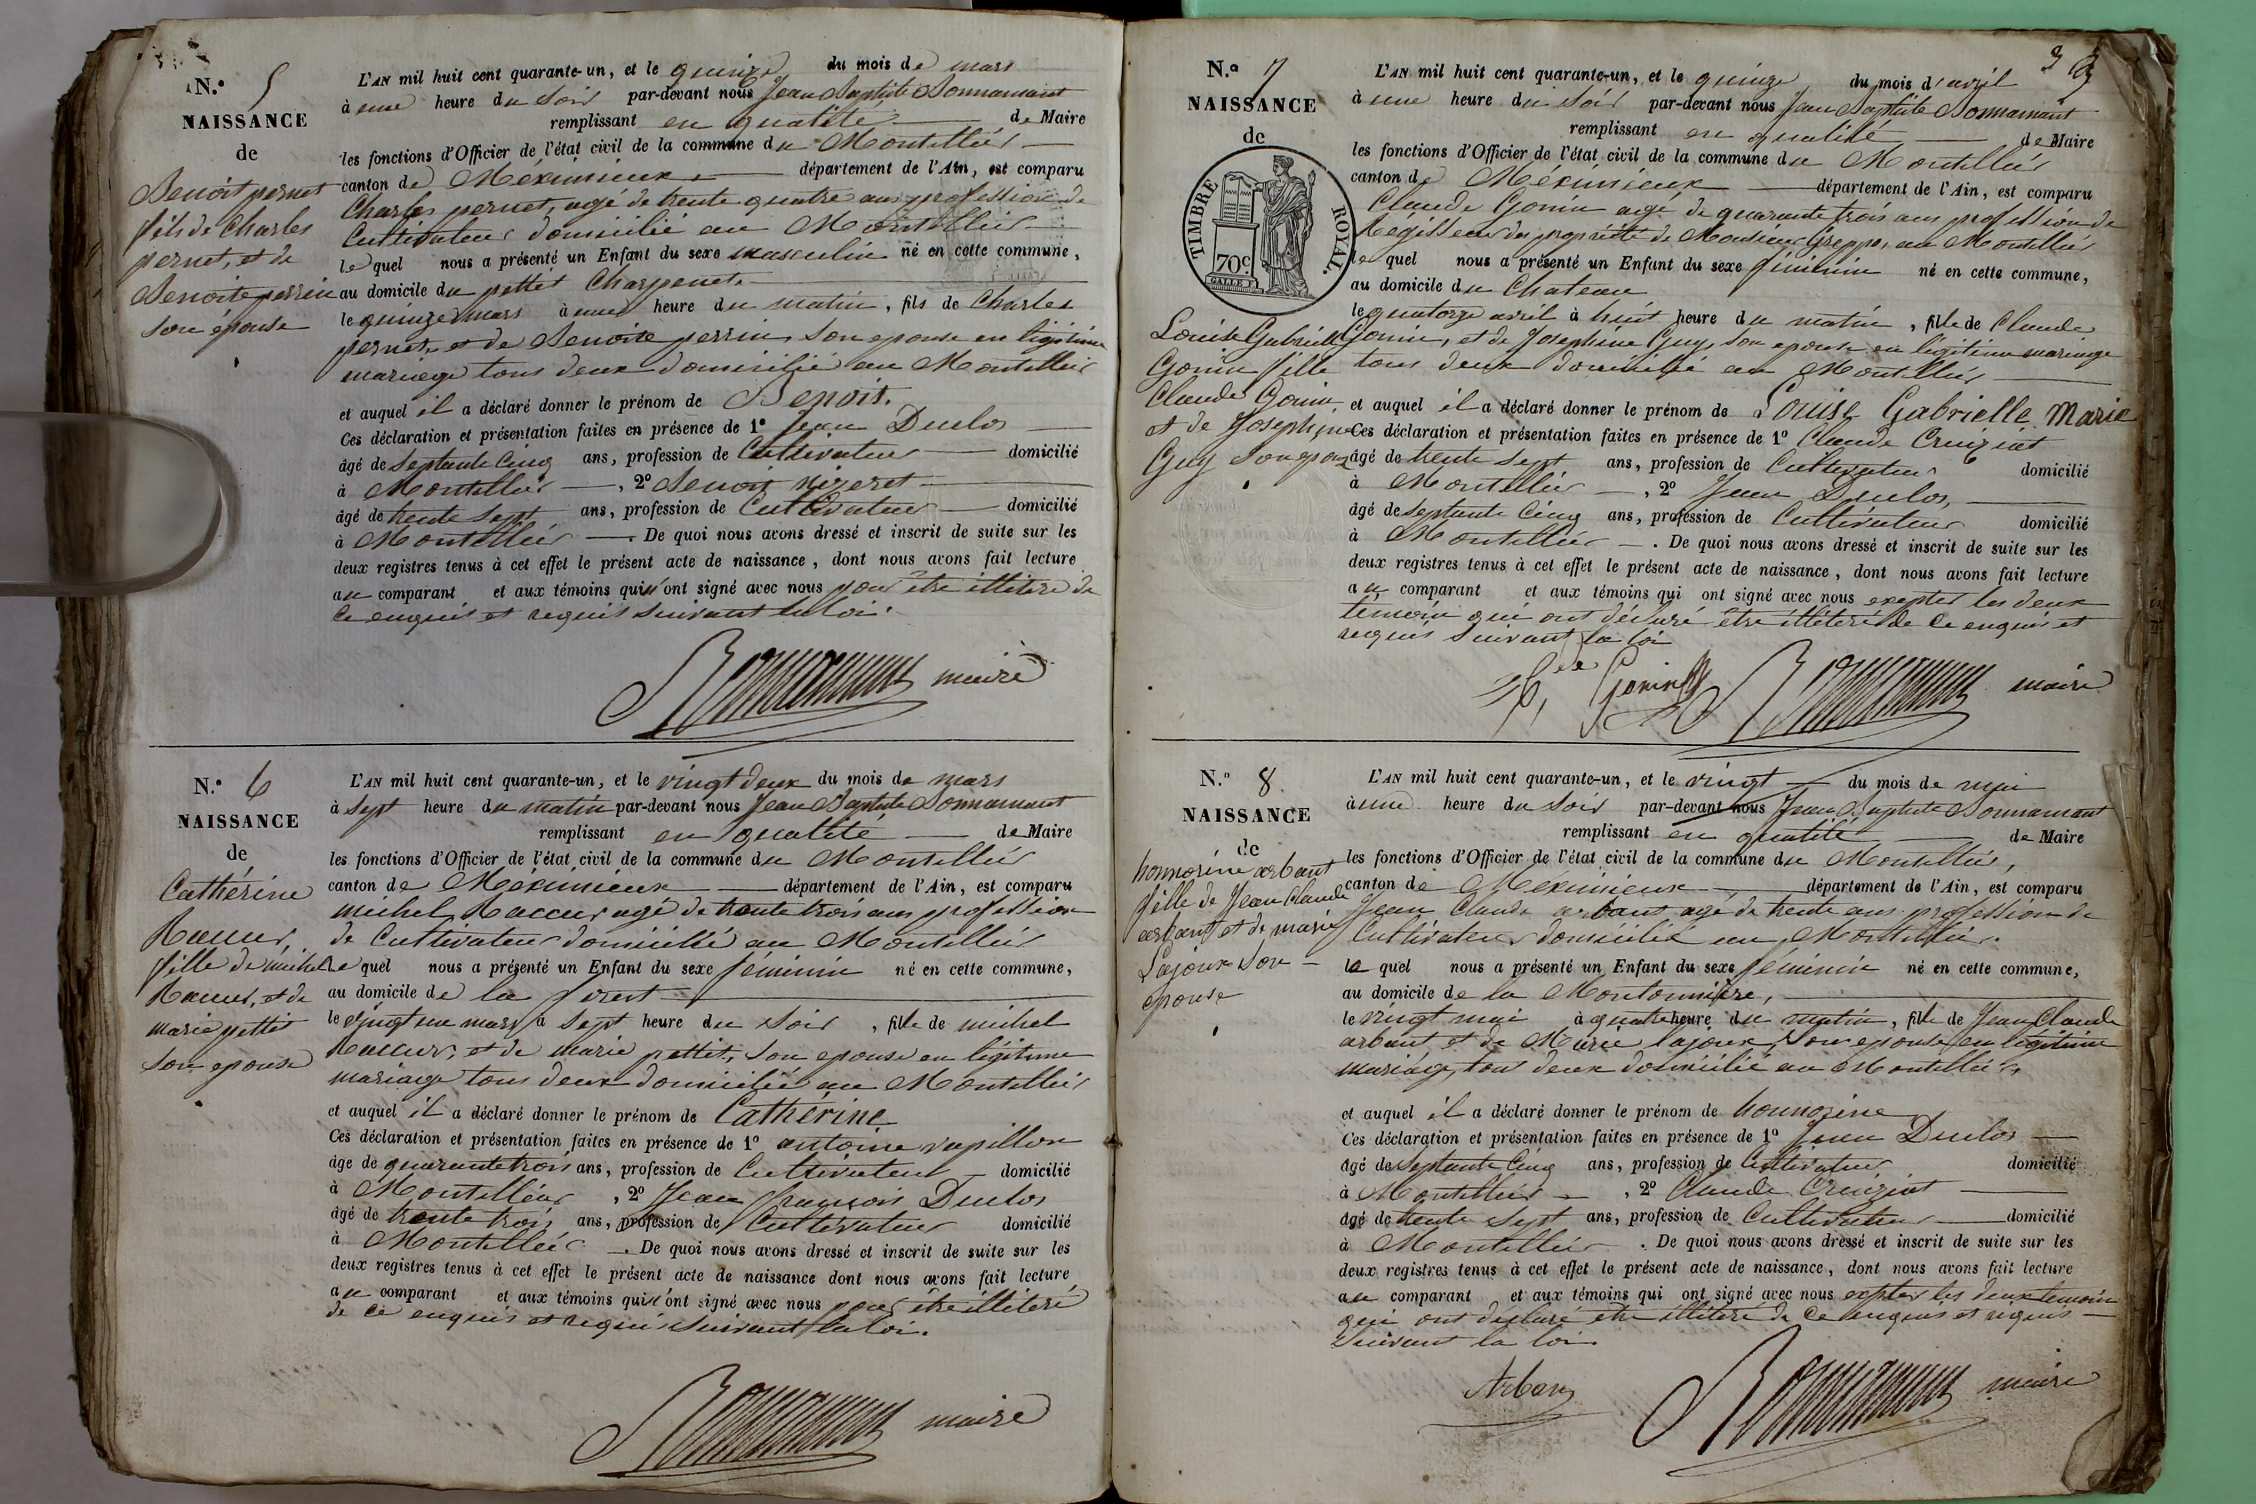 N.º 5
NAISSANCE
de
Benoit pernet
fils de Charles
pernet, et de
Benoite perrin
son épouse
L'AN mil huit cent quarante-un, et le quinze du mois de mars
à une heure du soir par-devant nous Jean Baptiste Bonnamant
remplissant en qualité de Maire
les fonctions d'Officier de l'état civil de la commune du Montellier
canton de Méximieux département de l'Ain, est comparu
Charles pernet, agé de trente quatre ans profession de
Cultivateur domicilié au Montellier
lequel nous a présenté un Enfant du sexe masculin né en cette commune,
au domicile du pettit Charpenet
le quinze mars à une heure du matin, fils de Charles
pernet, et de Benoite perrin, son epouse en légitime
mariage tous deux domicilié au Montellier
et auquel il a déclaré donner le prénom de Benoit.
Ces déclaration et présentation faites en présence de 1º Jean Duclos
âgé de septante cinq ans, profession de Cultivateur domicilié
à Montellier, 2º Benoit nizeret
âgé de trente sept ans, profession de Cultivateur domicilié
à Montellier. De quoi nous avons dressé et inscrit de suite sur les
deux registres tenus à cet effet le présent acte de naissance, dont nous avons fait lecture
au comparant et aux témoins qui n'ont signé avec nous pour être illiteré de
Ce enquis et requis suivant la loi.
Bonnamant maire
N.º 6
NAISSANCE
de
Cathérine
Raccur,
fille de michel
Raccur, et de
marie pettit
son epouse
L'AN mil huit cent quarante-un, et le vingt deux du mois de mars
à sept heure du matin par-devant nous Jean Baptiste Bonnamant
remplissant en qualité de Maire
les fonctions d'Officier de l'état civil de la commune du Montellier
canton de Méximieux département de l'Ain, est comparu
michel Raccur agé de trente trois ans profession
de Cultivateur domicillié au Montellier
Lequel nous a présenté un Enfant du sexe féminin né en cette commune,
au domicile de la foret
le vingt un mars à sept heure du soir, fille de michel
Raccur, et de marie pettit, son epouse en légitime
mariage tous deux domicilié au Montellier
et auquel il a déclaré donner le prénom de Cathérine
Ces déclaration et présentation faites en présence de 1º antoine vapillon
âgé de quarante trois ans, profession de Cultivateur domicilié
à Montellier, 2º Jean françois Duclos
âgé de trente trois ans, profession de Cultivateur domicilié
à Montellier. De quoi nous avons dressé et inscrit de suite sur les
deux registres tenus à cet effet le présent acte de naissance dont nous avons fait lecture
au comparant et aux témoins qui n'ont signé avec nous pour être illiteré
de ce enquis et requis suivant la loi.
Bonnamant maire
N.º 7
NAISSANCE
de
TIMBRE ROYAL.
70 c
Louise Gabrielle
Gonin fille
Claude Gonin,
et de Josephine
Guy son epouse
L'AN mil huit cent quarante-un, et le quinze du mois d'avril
à une heure du soir par-devant nous Jean Baptiste Bonnamant
remplissant en qualité de Maire
les fonctions d'Officier de l'état civil de la commune du Montellier
canton de Méximieux département de l'Ain, est comparu
Claude Gonin agé de quarante trois ans profession de
Régisseur des propriété de Monsieur Greppo, au Montellier
le quel nous a présenté un Enfant du sexe féminin né en cette commune,
au domicile du Chateau
le quatorze avril à huit heure du matin, fille de Claude
Gonin, et de Josephine Guy, son epouse en légitime mariage
tous deux domicilié au Montellier
et auquel il a déclaré donner le prénom de Louise Gabrielle Marie
Ces déclaration et présentation faites en présence de 1º Claude Cruiziat
âgé de trente sept ans, profession de Cultivateur domicilié
à Montellier, 2º Jean Duclos,
âgé de septante Cinq ans, profession de Cultivateur domicilié
à Montellier. De quoi nous avons dressé et inscrit de suite sur les
deux registres tenus à cet effet le présent acte de naissance, dont nous avons fait lecture
au comparant et aux témoins qui ont signé avec nous exepter les deux
témoin qui ont déclaré être illiteré de ce enquis et
requis suivant la loi
Gonin Bonnamant maire
N.º 8
NAISSANCE
de
honnorine arbant
fille de Jean Claude
arbant et de marie
Lajoux son
epouse
L'AN mil huit cent quarante-un, et le vingt du mois de mai
à une heure du soir par-devant nous Jean Baptiste Bonnamant
remplissant en qualité de Maire
les fonctions d'Officier de l'état civil de la commune du Montellier,
canton de Méximieux département de l'Ain, est comparu
Jean Claude arbant agé de trente ans profession de
Cultivateur domicilié au Montellier.
le quel nous a présenté un Enfant du sexe féminin né en cette commune,
au domicile de la Montonnière,
le vingt mai à quatre heure du matin, fille de Jean Claude
arbant et de Marie lajoux, son epouse en légitime
mariage, tous deux domicilié au Montellier,
et auquel il a déclaré donner le prénom de honnorine
Ces déclaration et présentation faites en présence de 1º Jean Duclos
âgé de septante Cinq ans, profession de Cultivateur domicilié
à Montellier, 2º Claude Cruiziat
âgé de trente sept ans, profession de Cultivateur domicilié
à Montellier. De quoi nous avons dressé et inscrit de suite sur les
deux registres tenus à cet effet le présent acte de naissance, dont nous avons fait lecture
au comparant et aux témoins qui ont signé avec nous expter les deux temoin
qui ont déclaré être illiteré de Ce enquis et requis
suivant la loi.
Arban Bonnamant maire